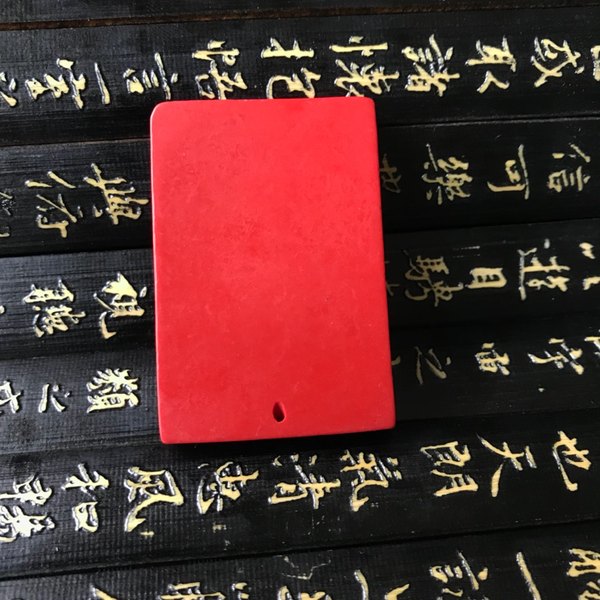 或取諸懷抱悟言一室之
信可樂也 與俯
以遊目騁 視聽
宇宙之 類之盛
也天朗氣清惠風和暢
一詠